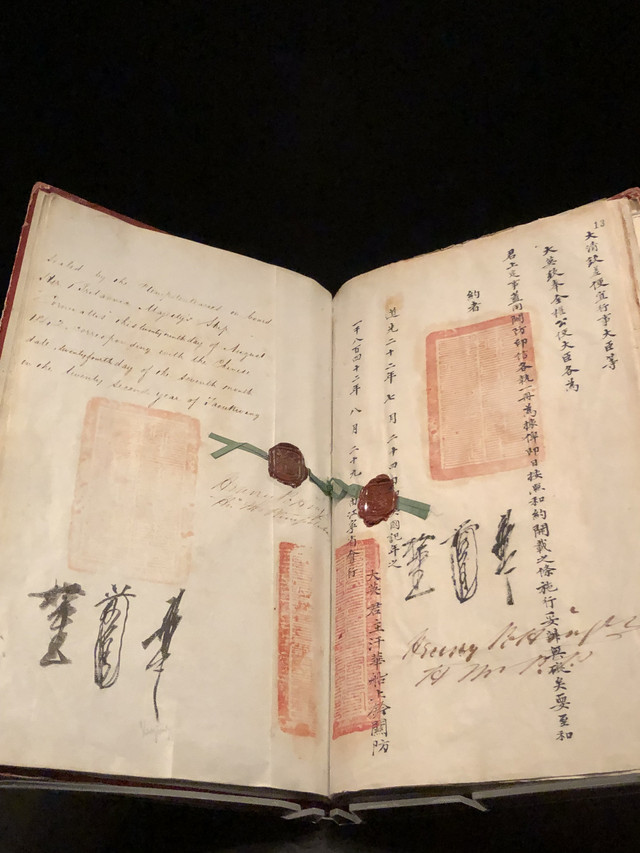 by the Plenipotentiaries on board
Her Britannic Majesty's Ship
this twenty ninth day of August
1842, corresponding with the Chinese
date, twenty fourth day of the seventh month
in the twenty second year of Taoukwang
Henry
13
大清欽差便宜行事大臣等
大英欽奉全權公使大臣各為
君上定事蓋用關防印信各執一冊為據俾即日按照和約開載之條施行妥辦無礙矣要至和
約者
道光二十二年七月二十四日國記年之
一千八百四十二年八月二十九由江寧省會行
大英君主汗華船上鈐關防
Henry Pottinger
H M